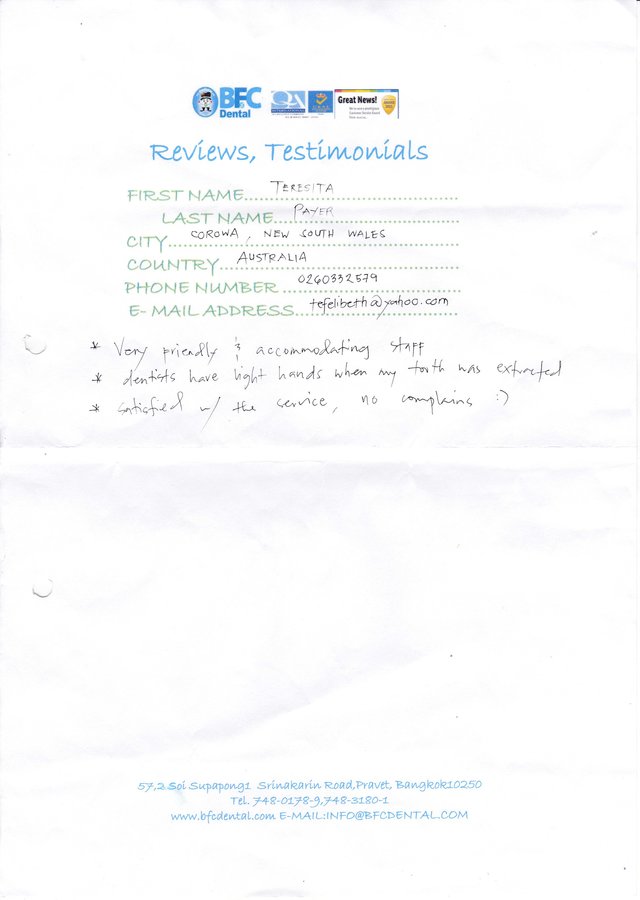 BFC
Dental
QA
Great News!
Reviews, Testimonials
FIRST NAME TERESITA
LAST NAME PAYER
CITY COROWA, NEW SOUTH WALES
COUNTRY AUSTRALIA
PHONE NUMBER 0260332579
E-MAIL ADDRESS tefelibeth@yahoo.com
* Very friendly & accommodating staff
* dentists have light hands when my tooth was extracted
* satisfied w/ the service, no complains :)
57,2 Soi Supapong1 Srinakarin Road,Pravet, Bangkok10250
Tel. 748-0178-9,748-3180-1
www.bfcdental.com E-MAIL:INFO@BFCDENTAL.COM